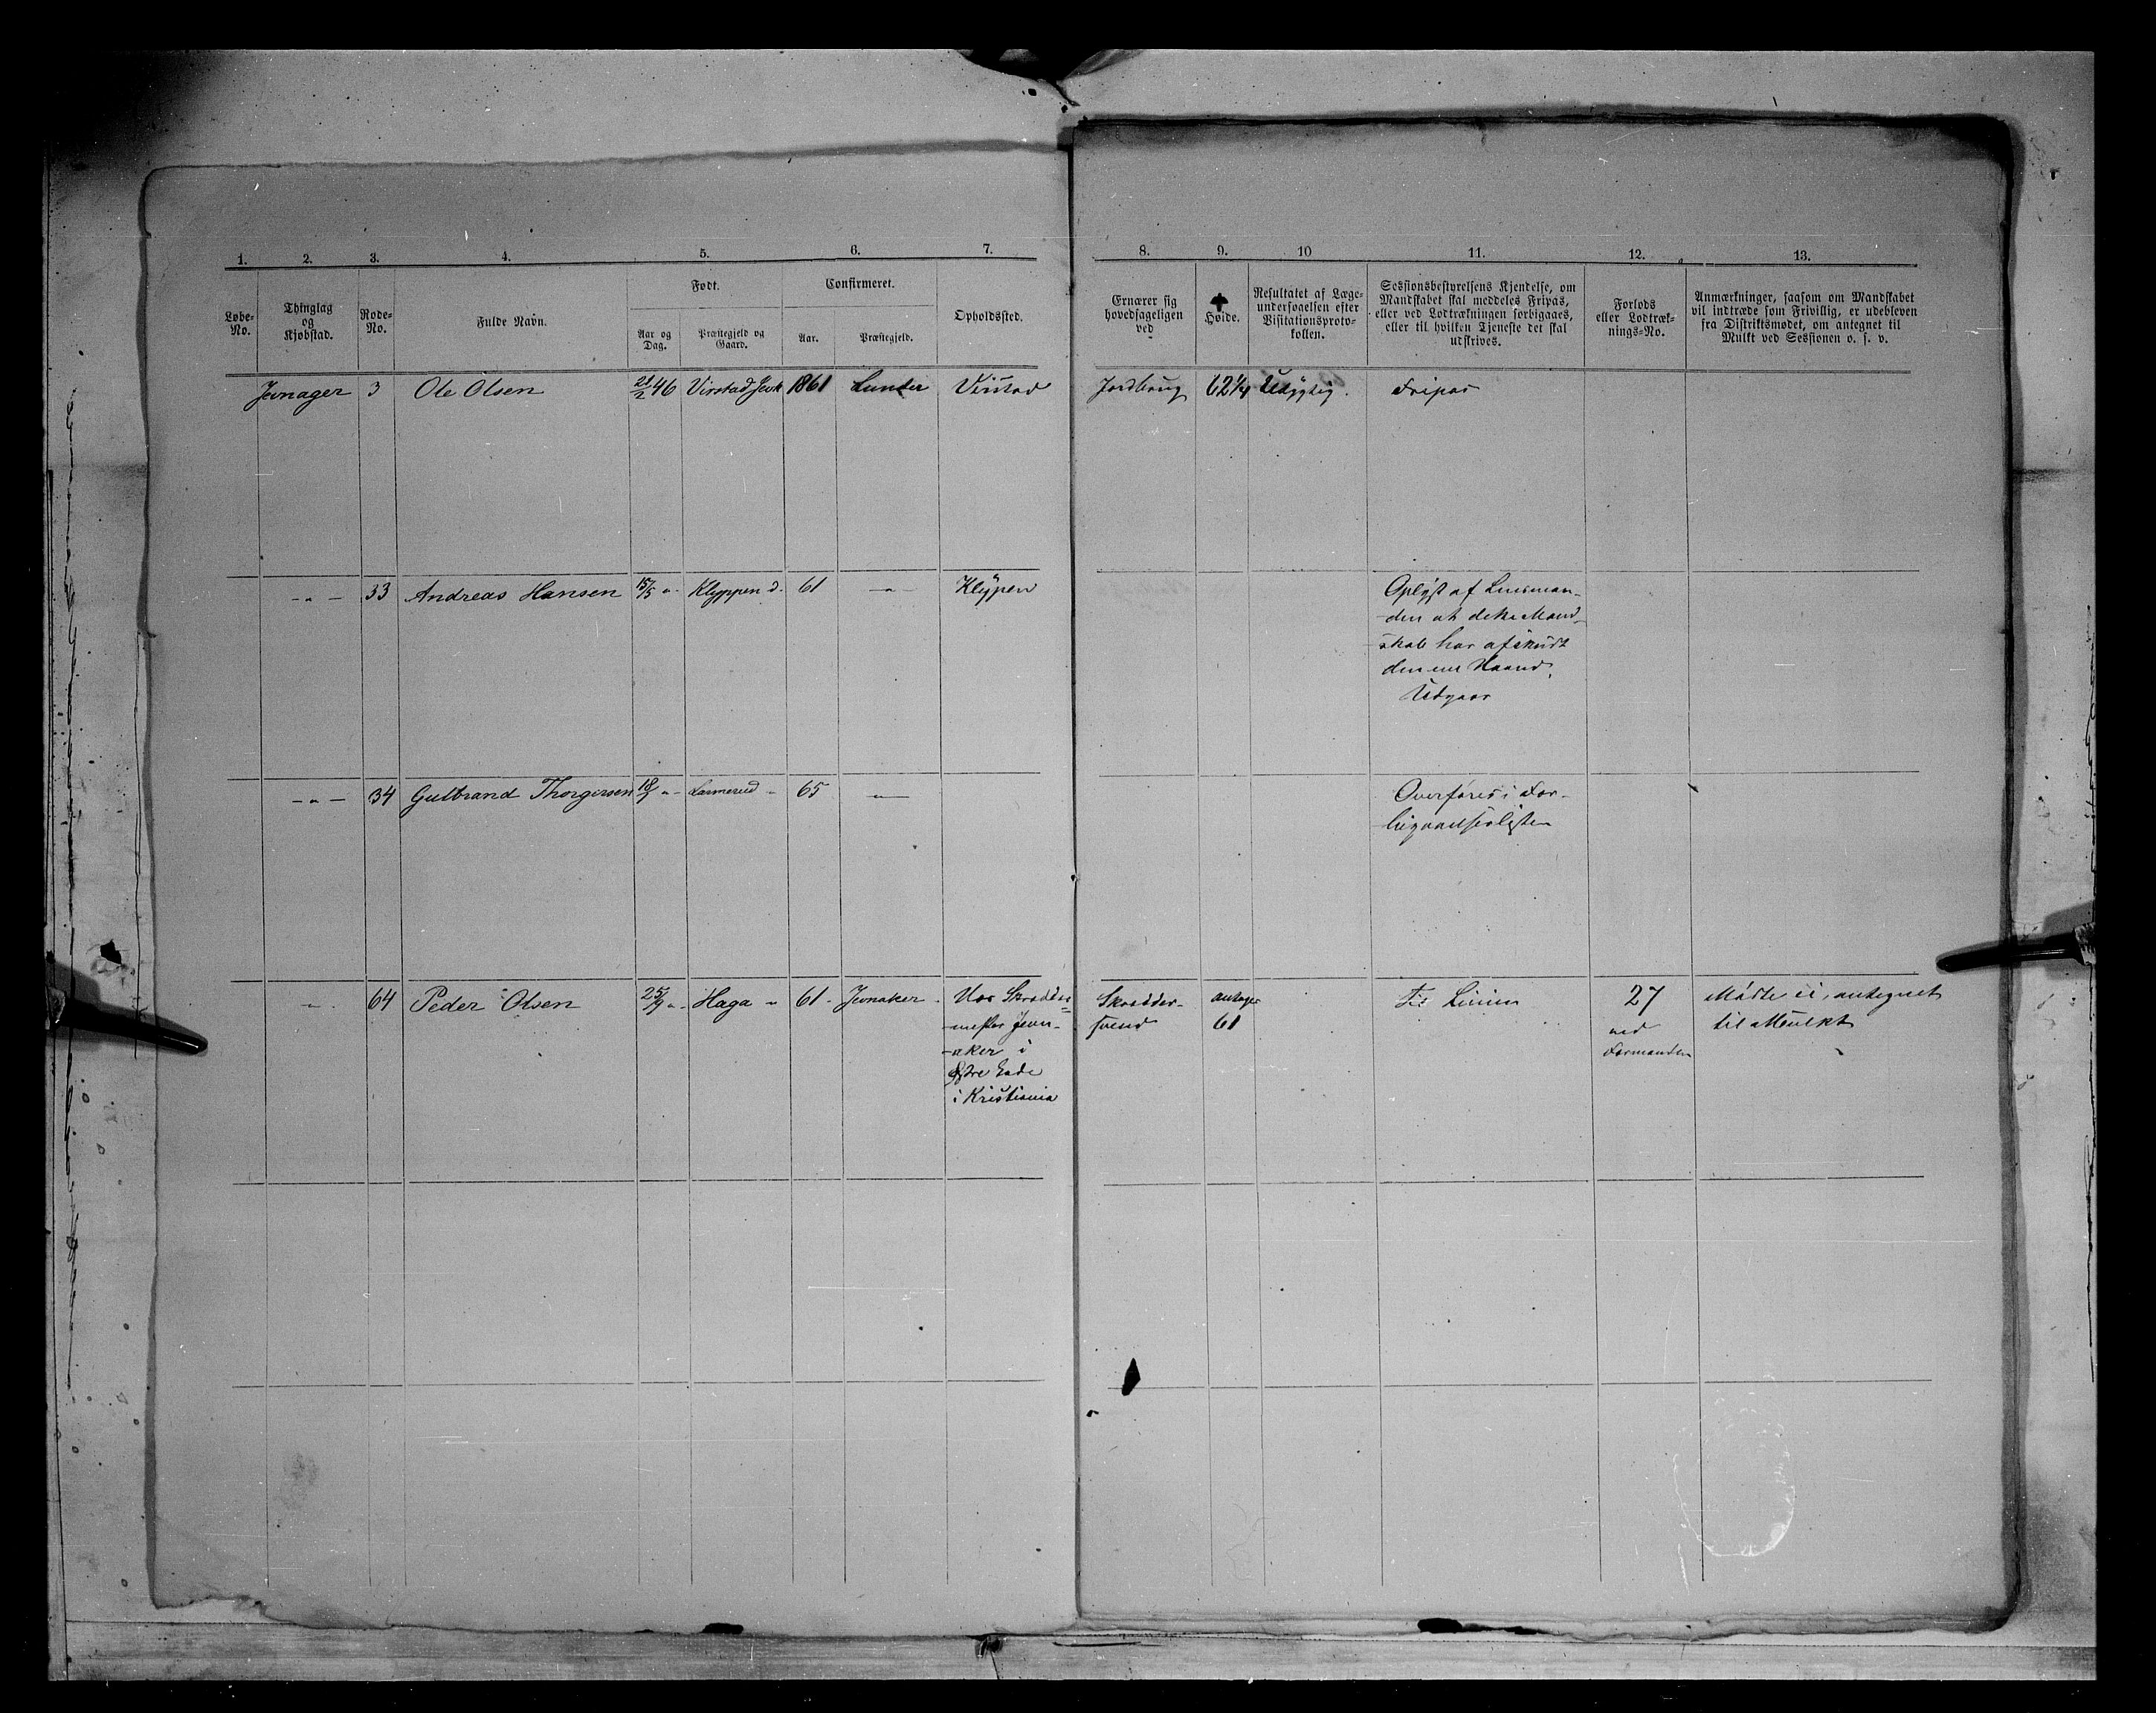 1. 2. 3. 4. 5. 6. 7. 8. 9. 10 11. 12. 13.
Løbe-No. Thinglag og Kjøbstad. Rode-No. Fulde Navn. Født. Confirmeret. Opholdssted.
Aar og Dag. Præstegjeld og Gaard. Aar. Præstegjeld.
Ernærer sig hovedsageligen ved
Høide.
Resultatet af Læge-
undersøgelsen efter
Visitationsproto-
kollen.
Sessionsbestyrelsens Kjendelse, om
Mandskabet skal meddeles Fripas,
eller ved Lodtrækningen forbigaaes,
eller til hvilken Tjeneste det skal
udskrives.
Forlods
eller Lodtræk-
nings-No.
Anmærkninger, saasom om Mandskabet
vil indtræde som Frivillig, er udebleven
fra Distriktsmødet, om antegnet til
Mulkt ved Sessionen o. s. v.
Jevnager 3 Ole Olsen 21/2 46 Virstad Jevk 1861 Lunder Virstad Jordbrug 62 1/4 Udygtig. Fripas
-"- 33 Andreas Hansen 15/5 " Klyppen d. 61 -"- Klypen Oplyst af Lensman-
den at dette Mand-
skab har afskudt
den ene Haand.
Udgaar
-"- 34 Gulbrand Thorgersen 18/7 " Larmerud " 65 -"- Overføres i For-
bigaaelseslisten
" 64 Peder Olsen 25/9 " Haga " 61 Jevnaker Hos Skrædder-
mester Jevn-
aker i
Østre Gade
i Kristiania
Skrædder-
svend
antager
61
Til Linien
27
ved
Formanden
Mødte ei, antegnet
til Mulkt